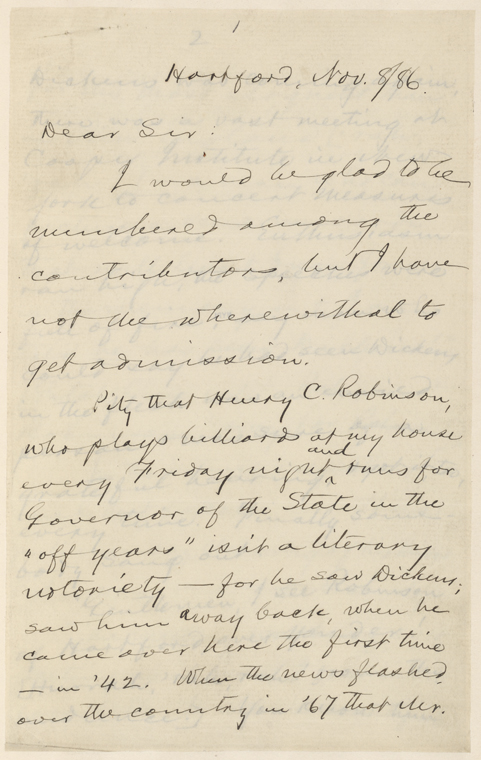 1
Hartford, Nov. 8/86.
Dear Sir:
I would be glad to be
numbered among the
contributors, but I have
not the wherewithal to
get admission.
Pity that Henry C. Robinson,
who plays billiards at my house
and
every Friday night runs for
Governor of the State in the
"off years" isn't a literary
notoriety — for he saw Dickens;
saw him away back, when he
came over here the first time
— in '42. When the news flashed
over the country in '67 that Mr.